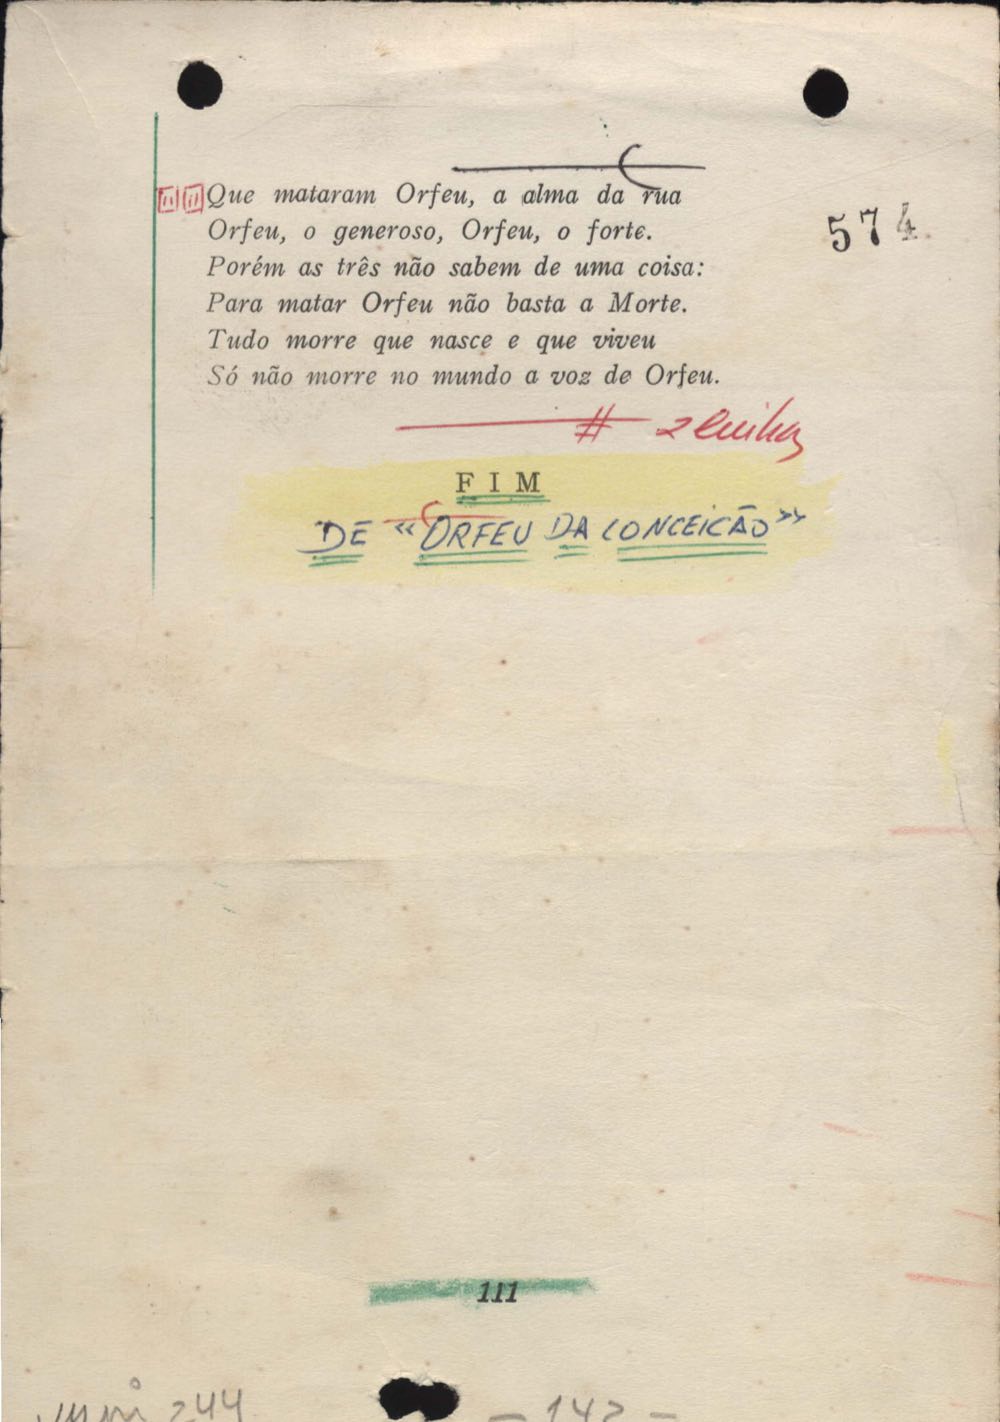 Que mataram Orfeu, a alma da rua
574
Orfeu, o generoso, Orfeu, o forte.
Porém as três não sabem de uma coisa:
Para matar Orfeu não basta a Morte.
Tudo morre que nasce e que viveu
Só não morre no mundo a voz de Orfeu.
# 2 linhas
FIM
DE «ORFEU DA CONCEICÃO»
111
244
— 142 —